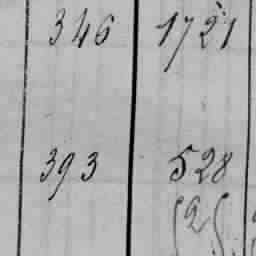 346 1721
393 528